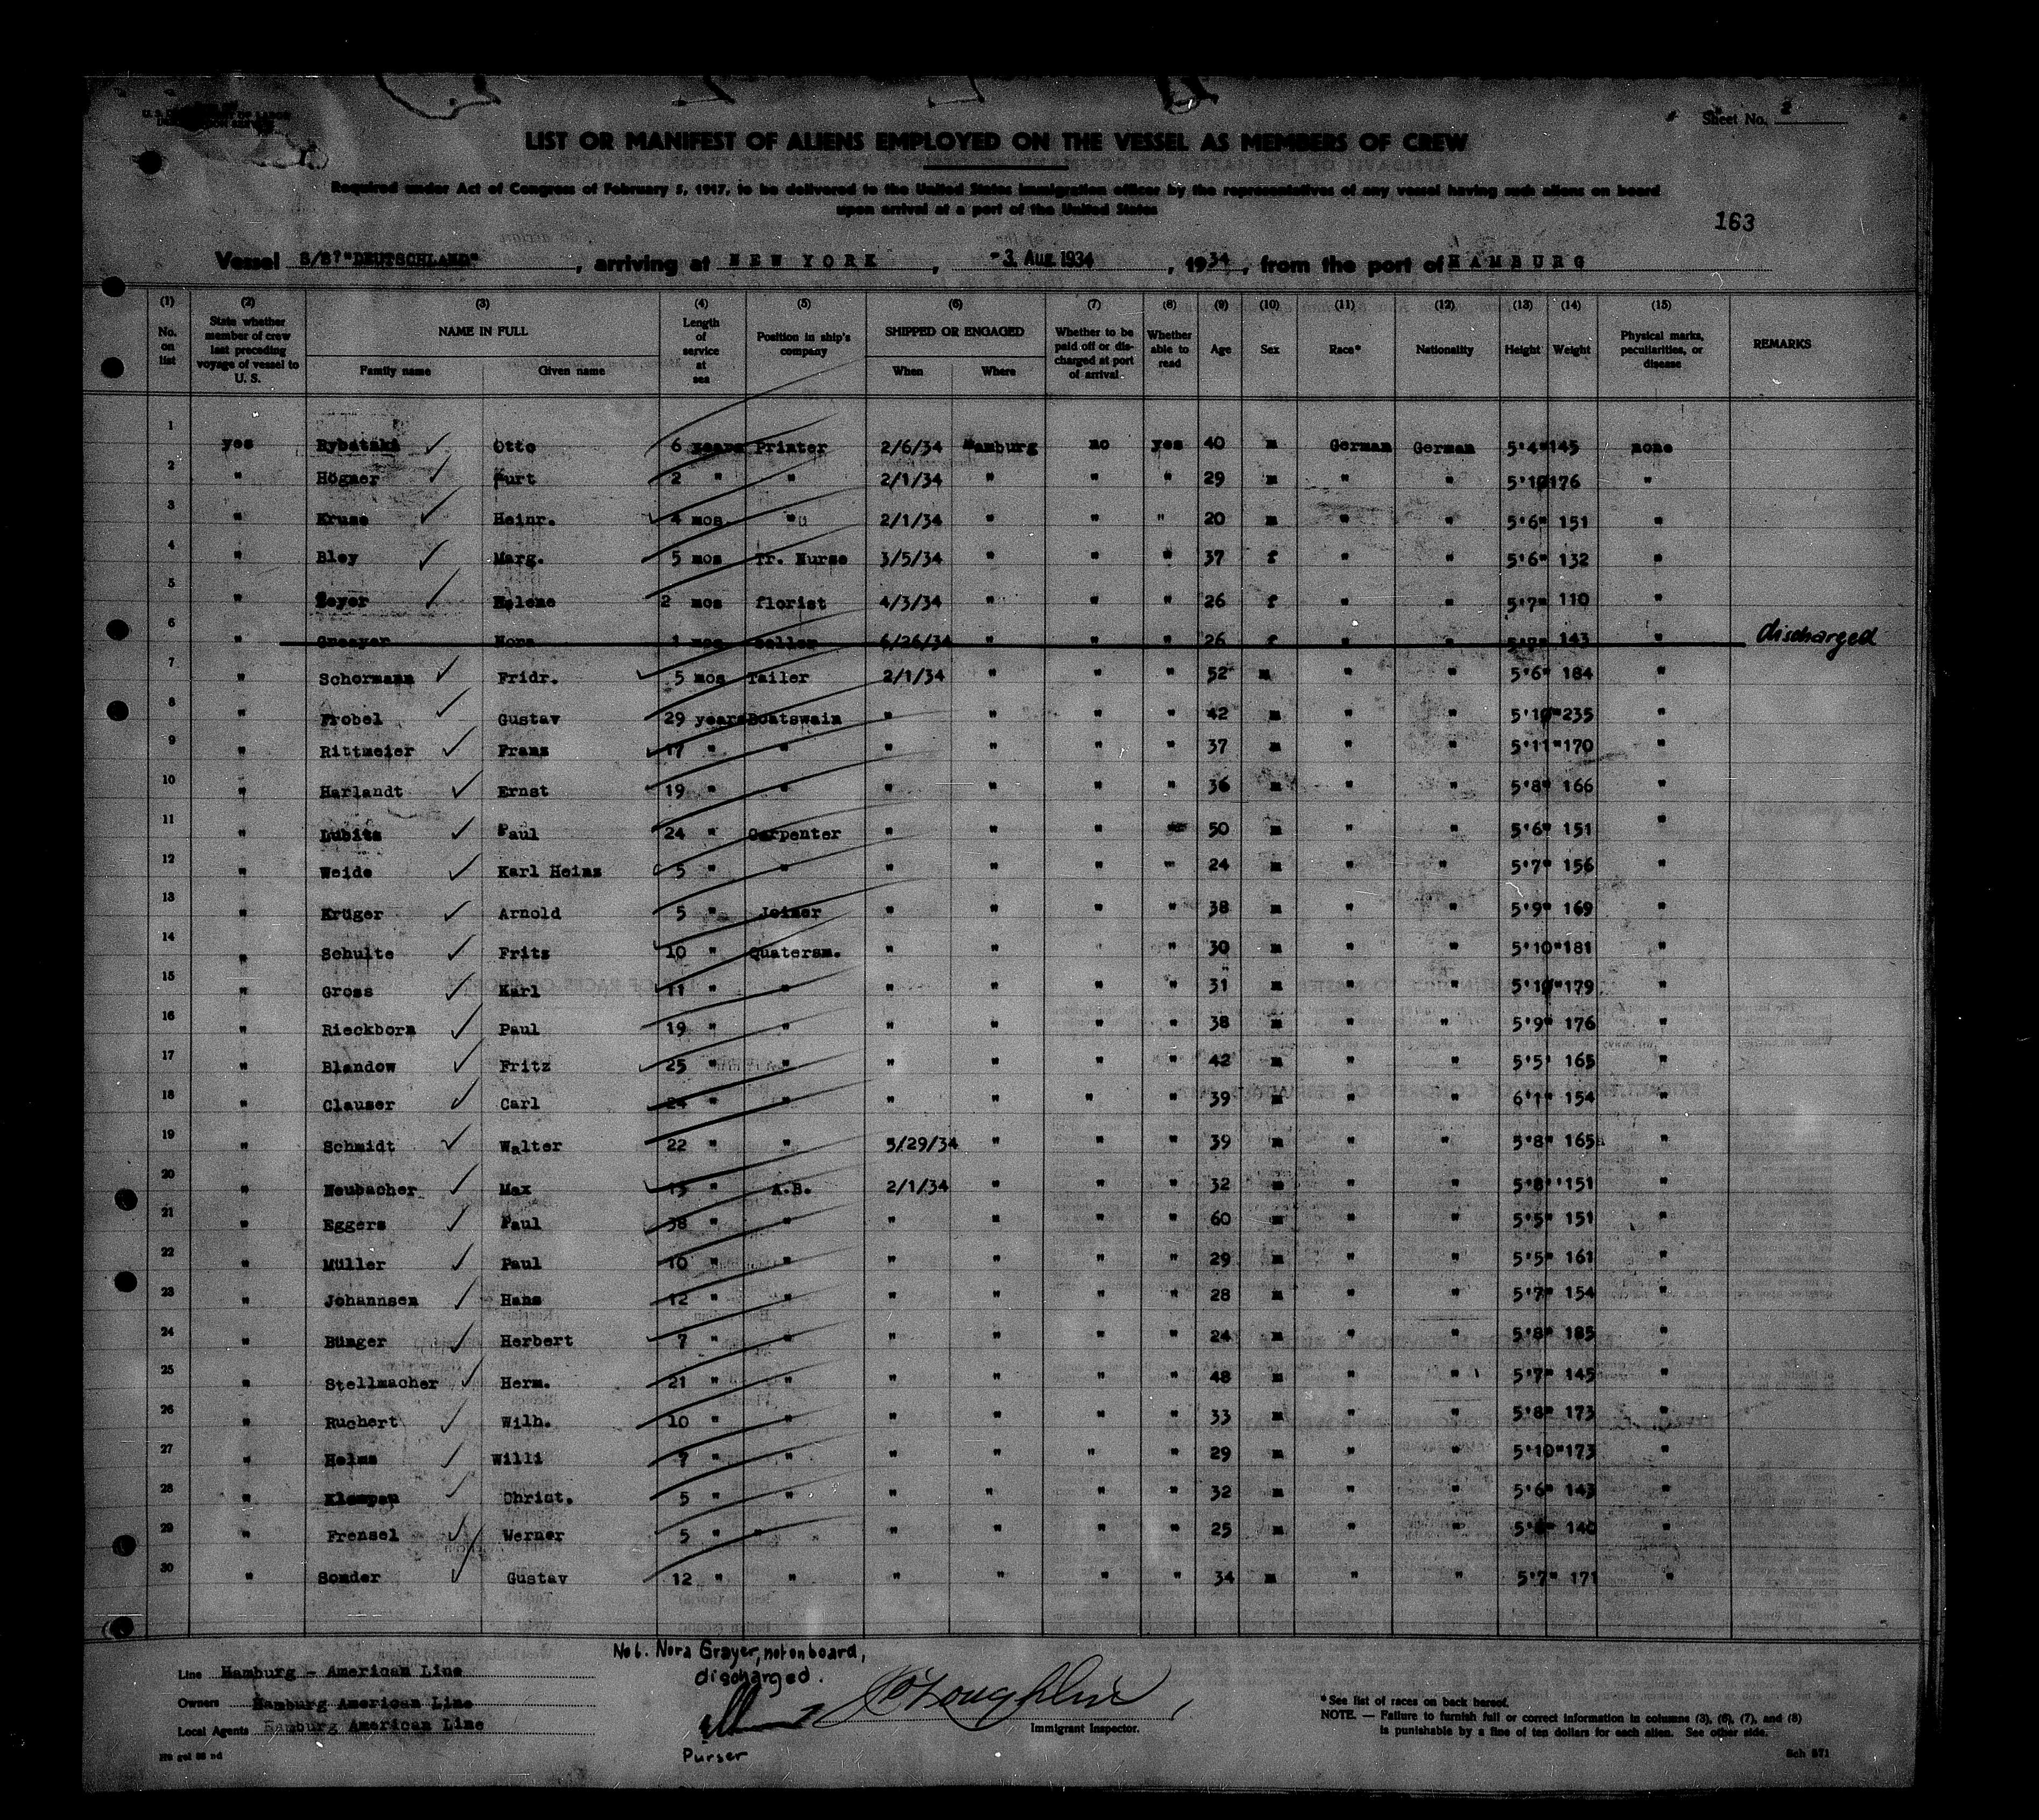 Sheet No. 2
LIST OR MANIFEST OF ALIENS EMPLOYED ON THE VESSEL AS MEMBERS OF CREW
Required under Act of Congress of February 5, 1917, to be delivered to the United States Immigration officer by the representatives of any vessel having such aliens on board
upon arrival at a port of the United States
163
Vessel S/S "DEUTSCHLAND", arriving at NEW YORK, -3 Aug 1934, 1934, from the port of HAMBURG
(1) (2) (3) (4) (5) (6) (7) (8) (9) (10) (11) (12) (13) (14) (15)
No. on list State whether member of crew last preceding voyage of vessel to U. S. NAME IN FULL Family name Given name Length of service at sea Position in ship's company SHIPPED OR ENGAGED When Where Whether to be paid off or discharged at port of arrival Whether able to read Age Sex Race* Nationality Height Weight Physical marks, peculiarities, or disease REMARKS
1 yes Otto 6 years Printer 2/6/34 Hamburg no yes 40 m German German 5'4" 145 none
2 " Högner Kurt 2 " " 2/1/34 " " " 29 m " " 5'10 176 "
3 " Kruse Heinr. 4 mos " 2/1/34 " " " 20 m " " 5'6" 151 "
4 " Bley Marg. 5 mos Tr. Nurse 3/5/34 " " " 37 f " " 5'6" 132 "
5 " Helene 2 mos florist 4/3/34 " " " 26 f " " 5'7" 110 "
6 " Nora 1 mos 6/26/34 " " " 26 f " " 143 " discharged
7 " Schormann Fridr. 5 mos Tailer 2/1/34 " " " 52 m " " 5'6" 184 "
8 " Frobel Gustav 29 years Boatswain " " " " 42 m " " 5'10" 235 "
9 " Rittmeier Franz 17 " " " " " " 37 m " " 5'11" 170 "
10 " Harlandt Ernst 19 " " " " " " 36 m " " 5'8" 166 "
11 " Lubitz Paul 24 " Carpenter " " " " 50 m " " 5'6" 151 "
12 " Weide Karl Heinz 5 " " " " " " 24 m " " 5'7" 156 "
13 " Krüger Arnold 5 " Joiner " " " " 38 m " " 5'9" 169 "
14 " Schulte Fritz 10 " Quatersm. " " " " 30 m " " 5'10" 181 "
15 " Gross Karl 11 " " " " " " 31 m " " 5'10" 179 "
16 " Rieckborn Paul 19 " " " " " " 38 m " " 5'9" 176 "
17 " Blandow Fritz 25 " " " " " " 42 m " " 5'5' 165 "
18 " Clauser Carl 24 " " " " " " 39 m " " 6'1" 154 "
19 " Schmidt Walter 22 " " 5/29/34 " " " 39 m " " 5'8" 165 "
20 " Neubacher Max 13 " A.B. 2/1/34 " " " 32 m " " 5'8" 151 "
21 " Eggers Paul 38 " " " " " " 60 m " " 5'5" 151 "
22 " Müller Paul 10 " " " " " " 29 m " " 5'5" 161 "
23 " Johannsen Hans 12 " " " " " " 28 m " " 5'7" 154 "
24 " Bünger Herbert 7 " " " " " " 24 m " " 5'8" 185 "
25 " Stellmacher Herm. 21 " " " " " " 48 m " " 5'7" 145 "
26 " Ruchert Wilh. 10 " " " " " " 33 m " " 5'8" 173 "
27 " Helms Willi 7 " " " " " " 29 m " " 5'10" 173 "
28 " Christ. 5 " " " " " " 32 m " " 5'6" 143 "
29 " Frensel Werner 5 " " " " " " 25 m " " 140 "
30 " Sonder Gustav 12 " " " " " " 34 m " " 5'7" 171 "
No 6. Nora Grayer, not on board,
discharged.
Line Hamburg - American Line
Owners Hamburg American Line
Local Agents Hamburg American Line
Immigrant Inspector.
Purser
* See list of races on back hereof.
NOTE. — Failure to furnish full or correct information in columns (3), (6), (7), and (8)
is punishable by a fine of ten dollars for each alien. See other side.
Sch 571